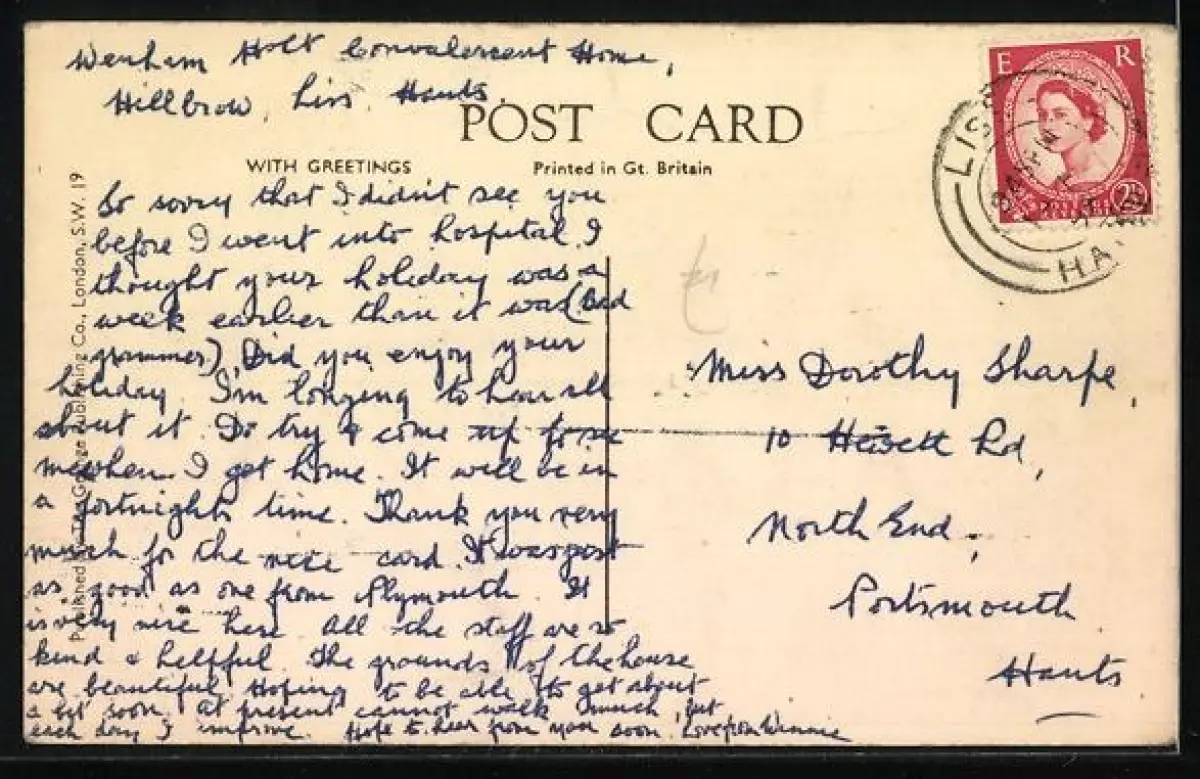 Wenham Holt Convalescent Home,
Hillbrow, Liss. Hants.
POST CARD
WITH GREETINGS
Printed in Gt. Britain
E R
2½
LISS
HA
So sorry that I didn't see you
before I went into hospital. I
thought your holiday was a
week earlier than it was (Bad
grammer). Did you enjoy your
holiday. I'm longing to hear all
about it. Do try & come up to see
me when I get home. It will be in
a fortnights time. Thank you very
much for the nice card. It was just
as good as one from Plymouth. It
is very nice here. All the staff are so
kind & helpful. The grounds of the house
are beautiful. Hoping to be able to get about
a bit soon. At present cannot walk much, but
each day I improve. Hope to hear from you soon. Love from Winnie
Miss Dorothy Sharpe,
10 Rd,
North End,
Portsmouth
Hants
Published by The Publishing Co., London, S.W. 19